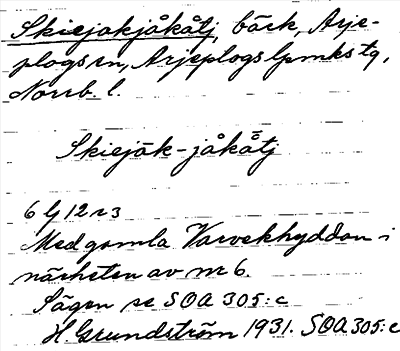 Skiejakjåkåtj, bäck, Arje-
plogs sn, Arjeplogs lpmks tg,
Norrb. l.
Skiejāk-jåkå̄tj
6 G 12 r 3
Med gamla Varvekhyddan i
närheten av nr 6.
Sägen se SOA 305:c
H. Grundström 1931. SOA 305:c